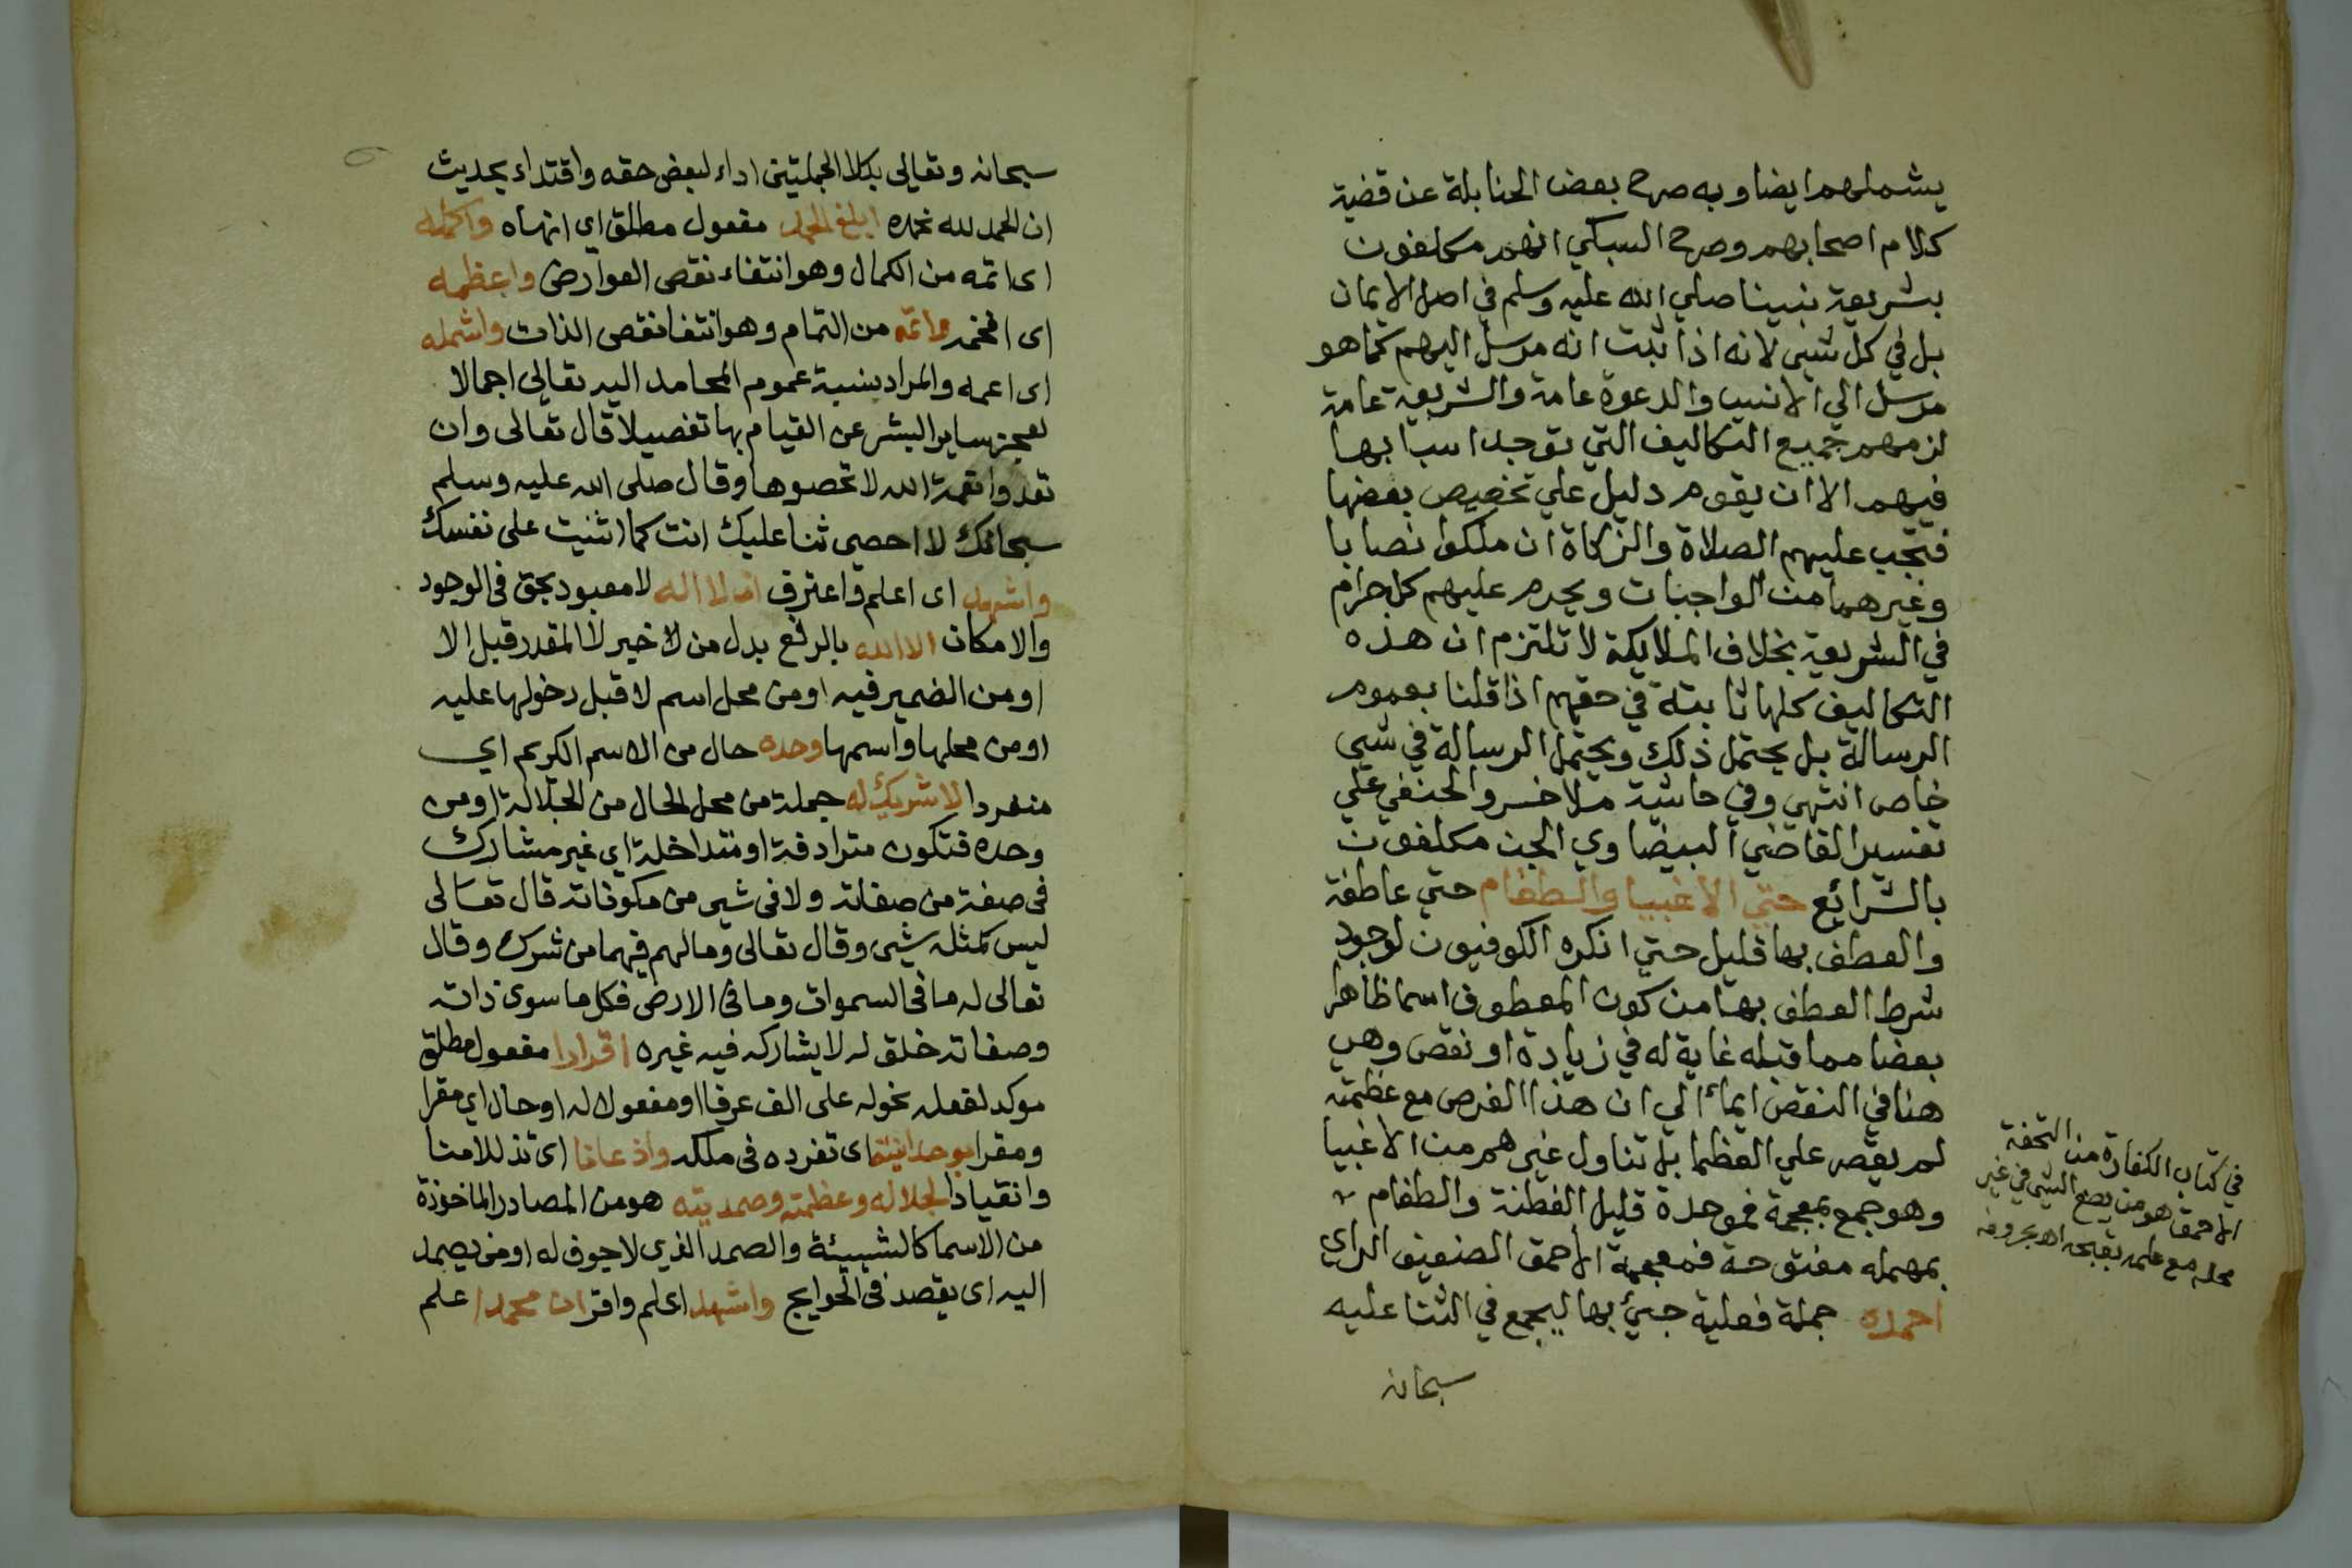 يشملهم ايضا وبه صرح بعض الحنابلة عن قضية
كلام اصحابهم وصرح السبكي انهم مكلفون
بشريعة نبينا صلي الله عليه وسلم في اصل الايمان
بل في كل شيى لانه اذا ثبت انه مرسل اليهم كما هو
مرسل الي الانس والدعوة عامة والشريعة عامة
لزمهم جميع التكاليف التي توجد اسبابها
فيهم الا ان يقوم دليل علي تخصيص بعضها
فتجب عليهم الصلاة والزكاة ان ملكوا نصابا
وغيرهما من الواجبات ويحرم عليهم كل حرام
في الشريعة بخلاف الملايكة لا تلتزم ان هذه
التكاليف كلها ثابتة في حقهم اذا قلنا بعموم
الرسالة بل يحتمل ذلك ويحتمل الرسالة في شيى
خاص انتهي وفي حاشية ملا خسرو الحنفي علي
تفسير القاضي البيضاوي الجن مكلفون
بالشرائع حتي الاغبيا والطغام حتي عاطفة
والعطف بها قليل حتي انكره الكوفيون لوجود
شرط العطف بها من كون المعطوف اسما ظاهرا
بعضا مما قبله غاية له في زيادة او نقص وهي
هنا في النقص ايمأ الي ان هذا الفرض مع عظمته
لم يقصر علي العظما بل تناول غيرهم من الاغبيا
وهو جمع بمعجمة فموحدة قليل الفطنة والطغام
بمهملة مفتوحة فمعجمة الاحمق الضعيف الراي
احمده جملة فعلية جيئ بها ليجمع في الثنا عليه
سبحانه
في كتاب الكفارة من التحفة
الاحمق هو من يضع الشي في غير
محله مع علمه بقبحه اه بحروفه
سبحانه وتعالى بكلا الجملتين اداء لبعض حقه واقتداء بحديث
ان الحمد لله نحمده ابلغ الحمد مفعول مطلق اي انهاه واكمله
اى اتمه من الكمال وهو انتفاء نقص العوارض واعظمه
اى افخمه واتمه من التمام وهو انتفا نقص الذات واشمله
اى اعمه والمراد بنسبة عموم المحامد اليه تعالى اجمالا
لعجز ساير البشر عن القيام بها تفصيلا قال تعالى وان
تعدوا نعمة الله لا تحصوها وقال صلى الله عليه وسلم
سبحانك لا احصى ثنا عليك انت كما اثنيت على نفسك
واشهد اى اعلم واعترف ان لا اله لا معبود بحق فى الوجود
والامكان الا الله بالرفع بدل من لا خير لا المقدر قبل الا
او من الضمير فيه او من محل اسم لا قبل دخولها عليه
او من محلها واسمها وحده حال من الاسم الكريم اي
منفردا لا شريك له جملة من محل الحال من الجلالة او من
وحده فتكون مترادفة او متداخلة اي غير مشارك
فى صفة من صفاته ولا فى شيى من مكوناته قال تعالى
ليس كمثله شيى وقال تعالى وما لهم فيهما من شرك وقال
تعالى له ما فى السموات وما فى الارض فكل ما سوى ذاته
وصفاته خلق له لا يشاركه فيه غيره اقرارا مفعول مطلق
موكد لفعله نحوله على الف عرفا او مفعول له او حال اي مقرا
ومقرا بوحدانيته اى تفرده فى ملكه واذعانا اى تذللا منا
وانقيادا لجلاله وعظمته وصمديته هو من المصادر الماخوذة
من الاسما كالشيبيئة والصمد الذي لا جوف له او من يصمد
اليه اى يقصد فى الحوايج واشهد اى اعلم واقر ان محمدا علم